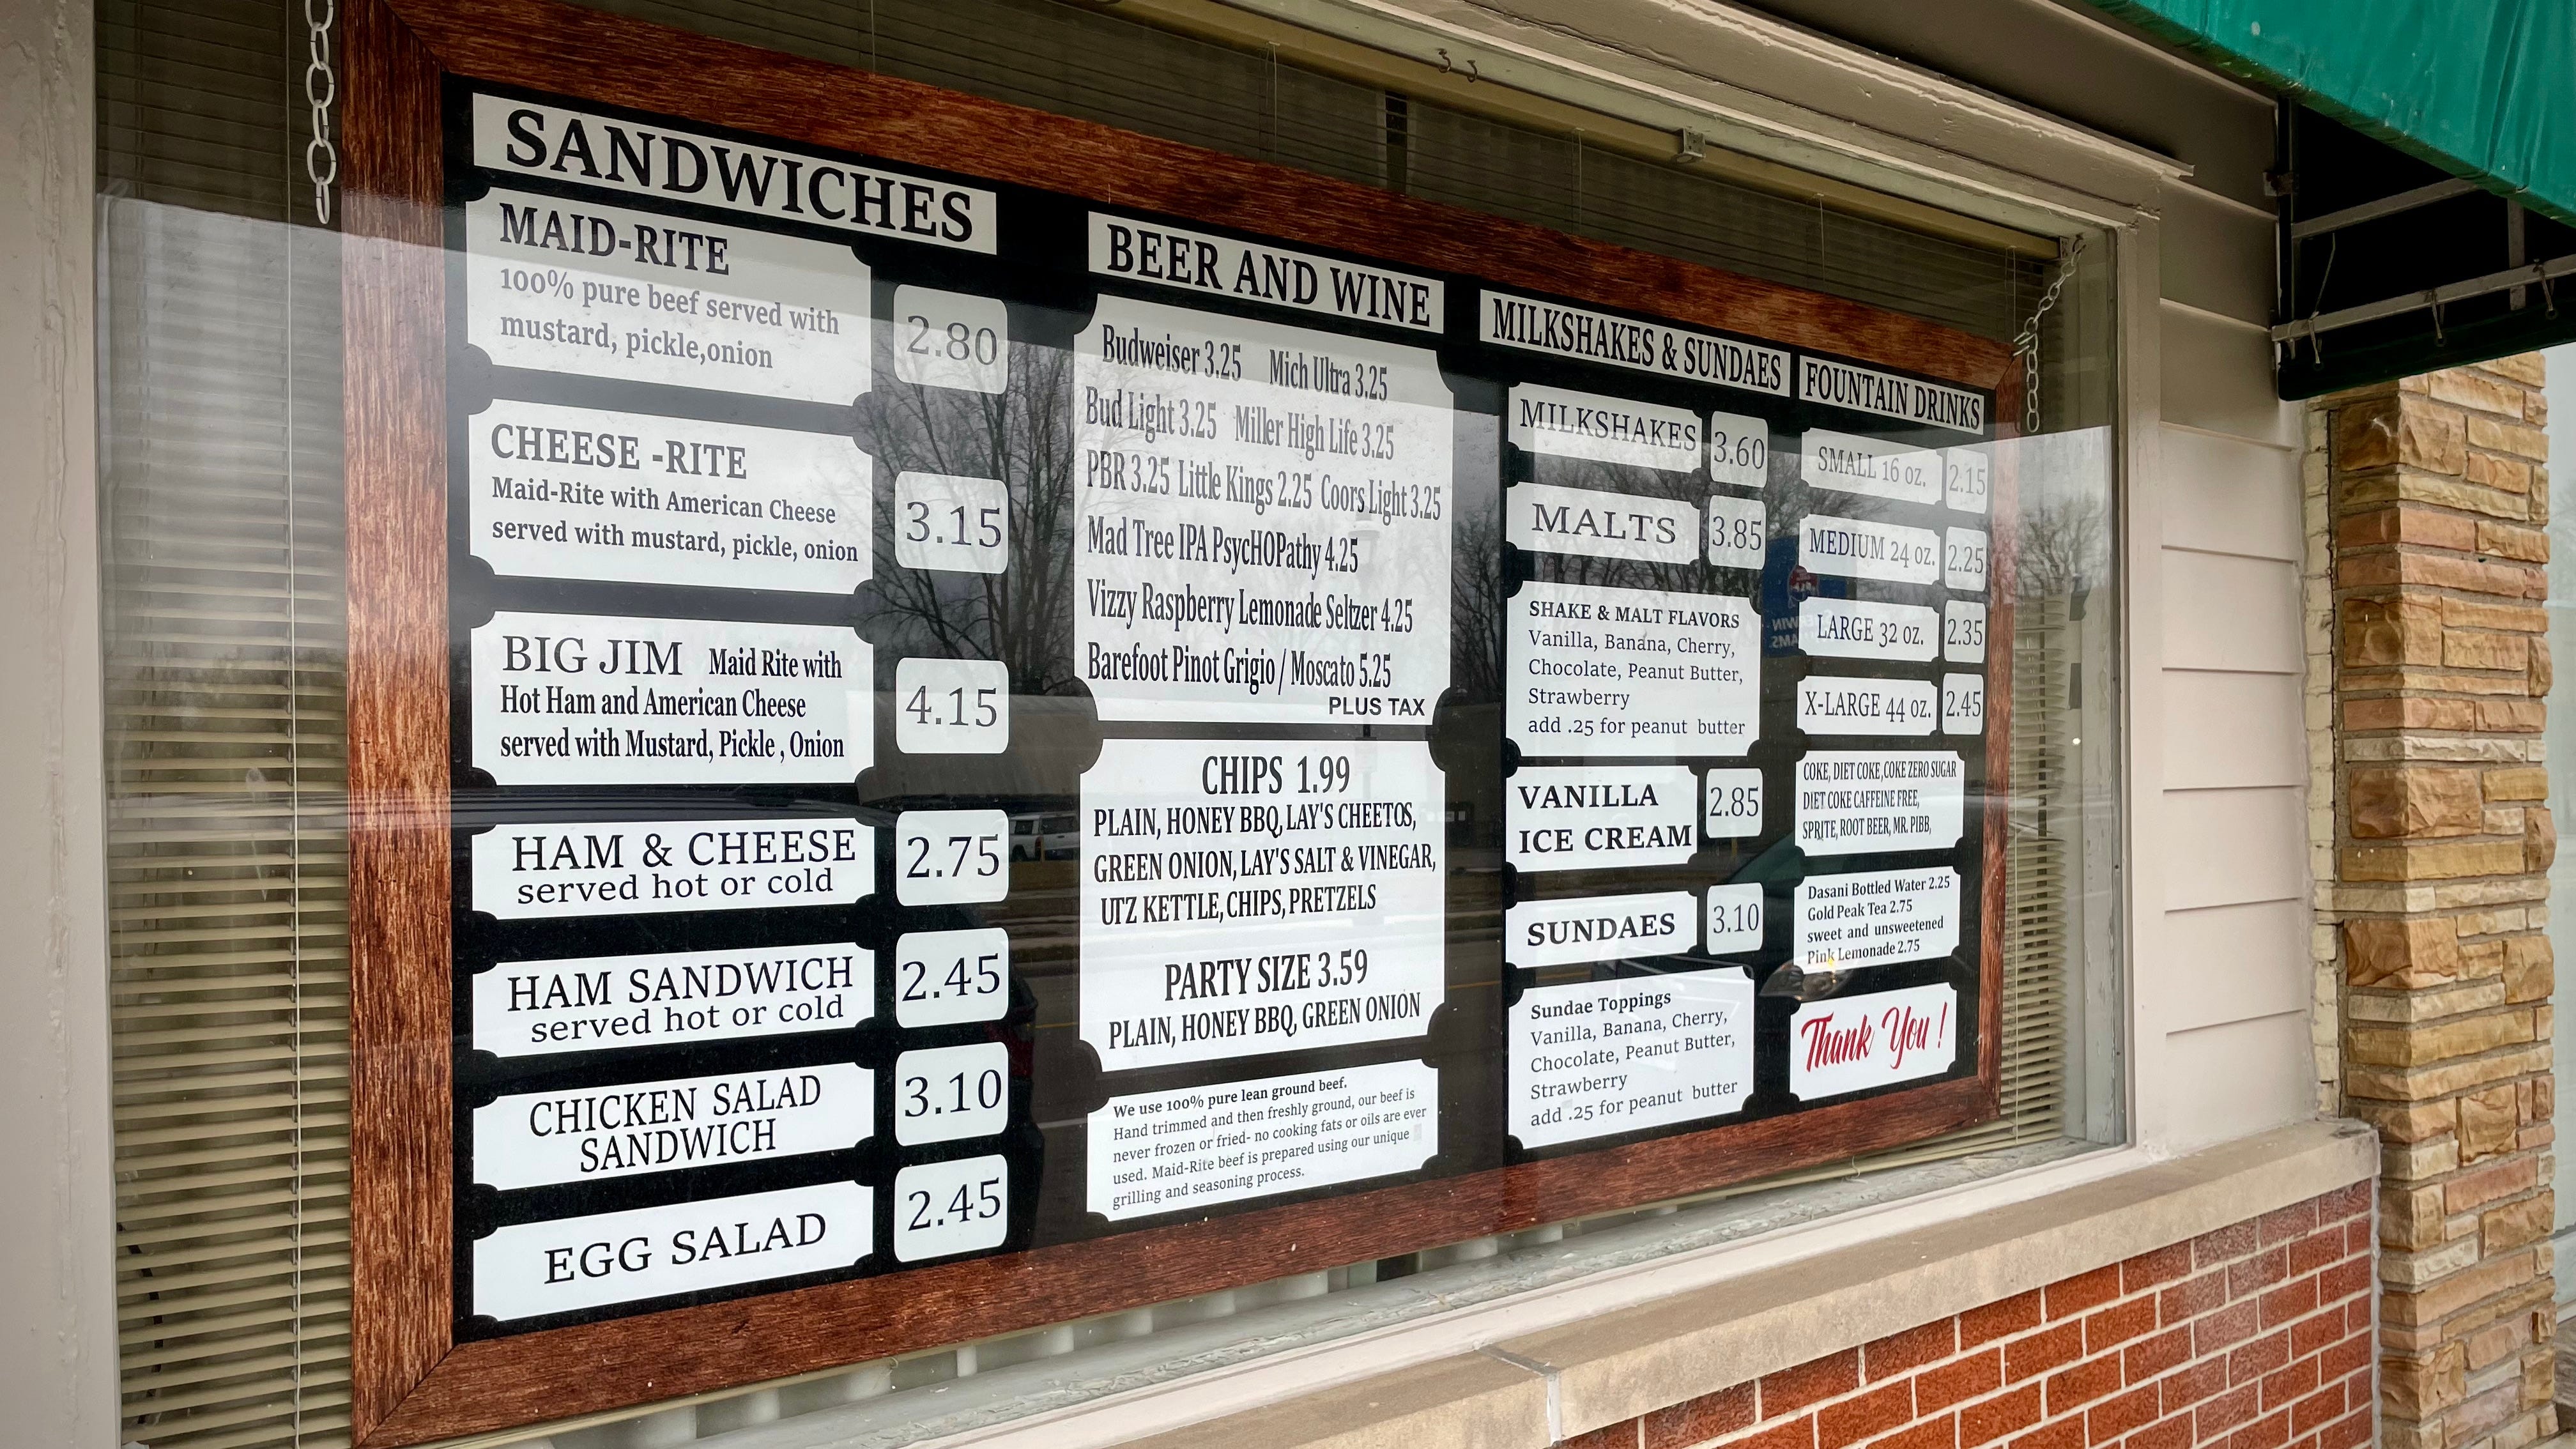 SANDWICHES
MAID-RITE
100% pure beef served with
mustard, pickle,onion
2.80
CHEESE -RITE
Maid-Rite with American Cheese
served with mustard, pickle, onion
3.15
BIG JIM Maid Rite with
Hot Ham and American Cheese
served with Mustard, Pickle , Onion
4.15
HAM & CHEESE
served hot or cold
2.75
HAM SANDWICH
served hot or cold
2.45
CHICKEN SALAD
SANDWICH
3.10
EGG SALAD
2.45
BEER AND WINE
Budweiser 3.25 Mich Ultra 3.25
Bud Light 3.25 Miller High Life 3.25
PBR 3.25 Little Kings 2.25 Coors Light 3.25
Mad Tree IPA PsycHOPathy 4.25
Vizzy Raspberry Lemonade Seltzer 4.25
Barefoot Pinot Grigio / Moscato 5.25
PLUS TAX
CHIPS 1.99
PLAIN, HONEY BBQ, LAY'S CHEETOS,
GREEN ONION, LAY'S SALT & VINEGAR,
UTZ KETTLE, CHIPS, PRETZELS
PARTY SIZE 3.59
PLAIN, HONEY BBQ, GREEN ONION
We use 100% pure lean ground beef.
Hand trimmed and then freshly ground, our beef is
never frozen or fried- no cooking fats or oils are ever
used. Maid-Rite beef is prepared using our unique
grilling and seasoning process.
MILKSHAKES & SUNDAES
MILKSHAKES 3.60
MALTS 3.85
SHAKE & MALT FLAVORS
Vanilla, Banana, Cherry,
Chocolate, Peanut Butter,
Strawberry
add .25 for peanut butter
VANILLA
ICE CREAM
2.85
SUNDAES 3.10
Sundae Toppings
Vanilla, Banana, Cherry,
Chocolate, Peanut Butter,
Strawberry
add .25 for peanut butter
FOUNTAIN DRINKS
SMALL 16 oz. 2.15
MEDIUM 24 oz. 2.25
LARGE 32 oz. 2.35
X-LARGE 44 oz. 2.45
COKE, DIET COKE ,COKE ZERO SUGAR
DIET COKE CAFFEINE FREE,
SPRITE, ROOT BEER, MR. PIBB,
Dasani Bottled Water 2.25
Gold Peak Tea 2.75
sweet and unsweetened
Pink Lemonade 2.75
Thank You !